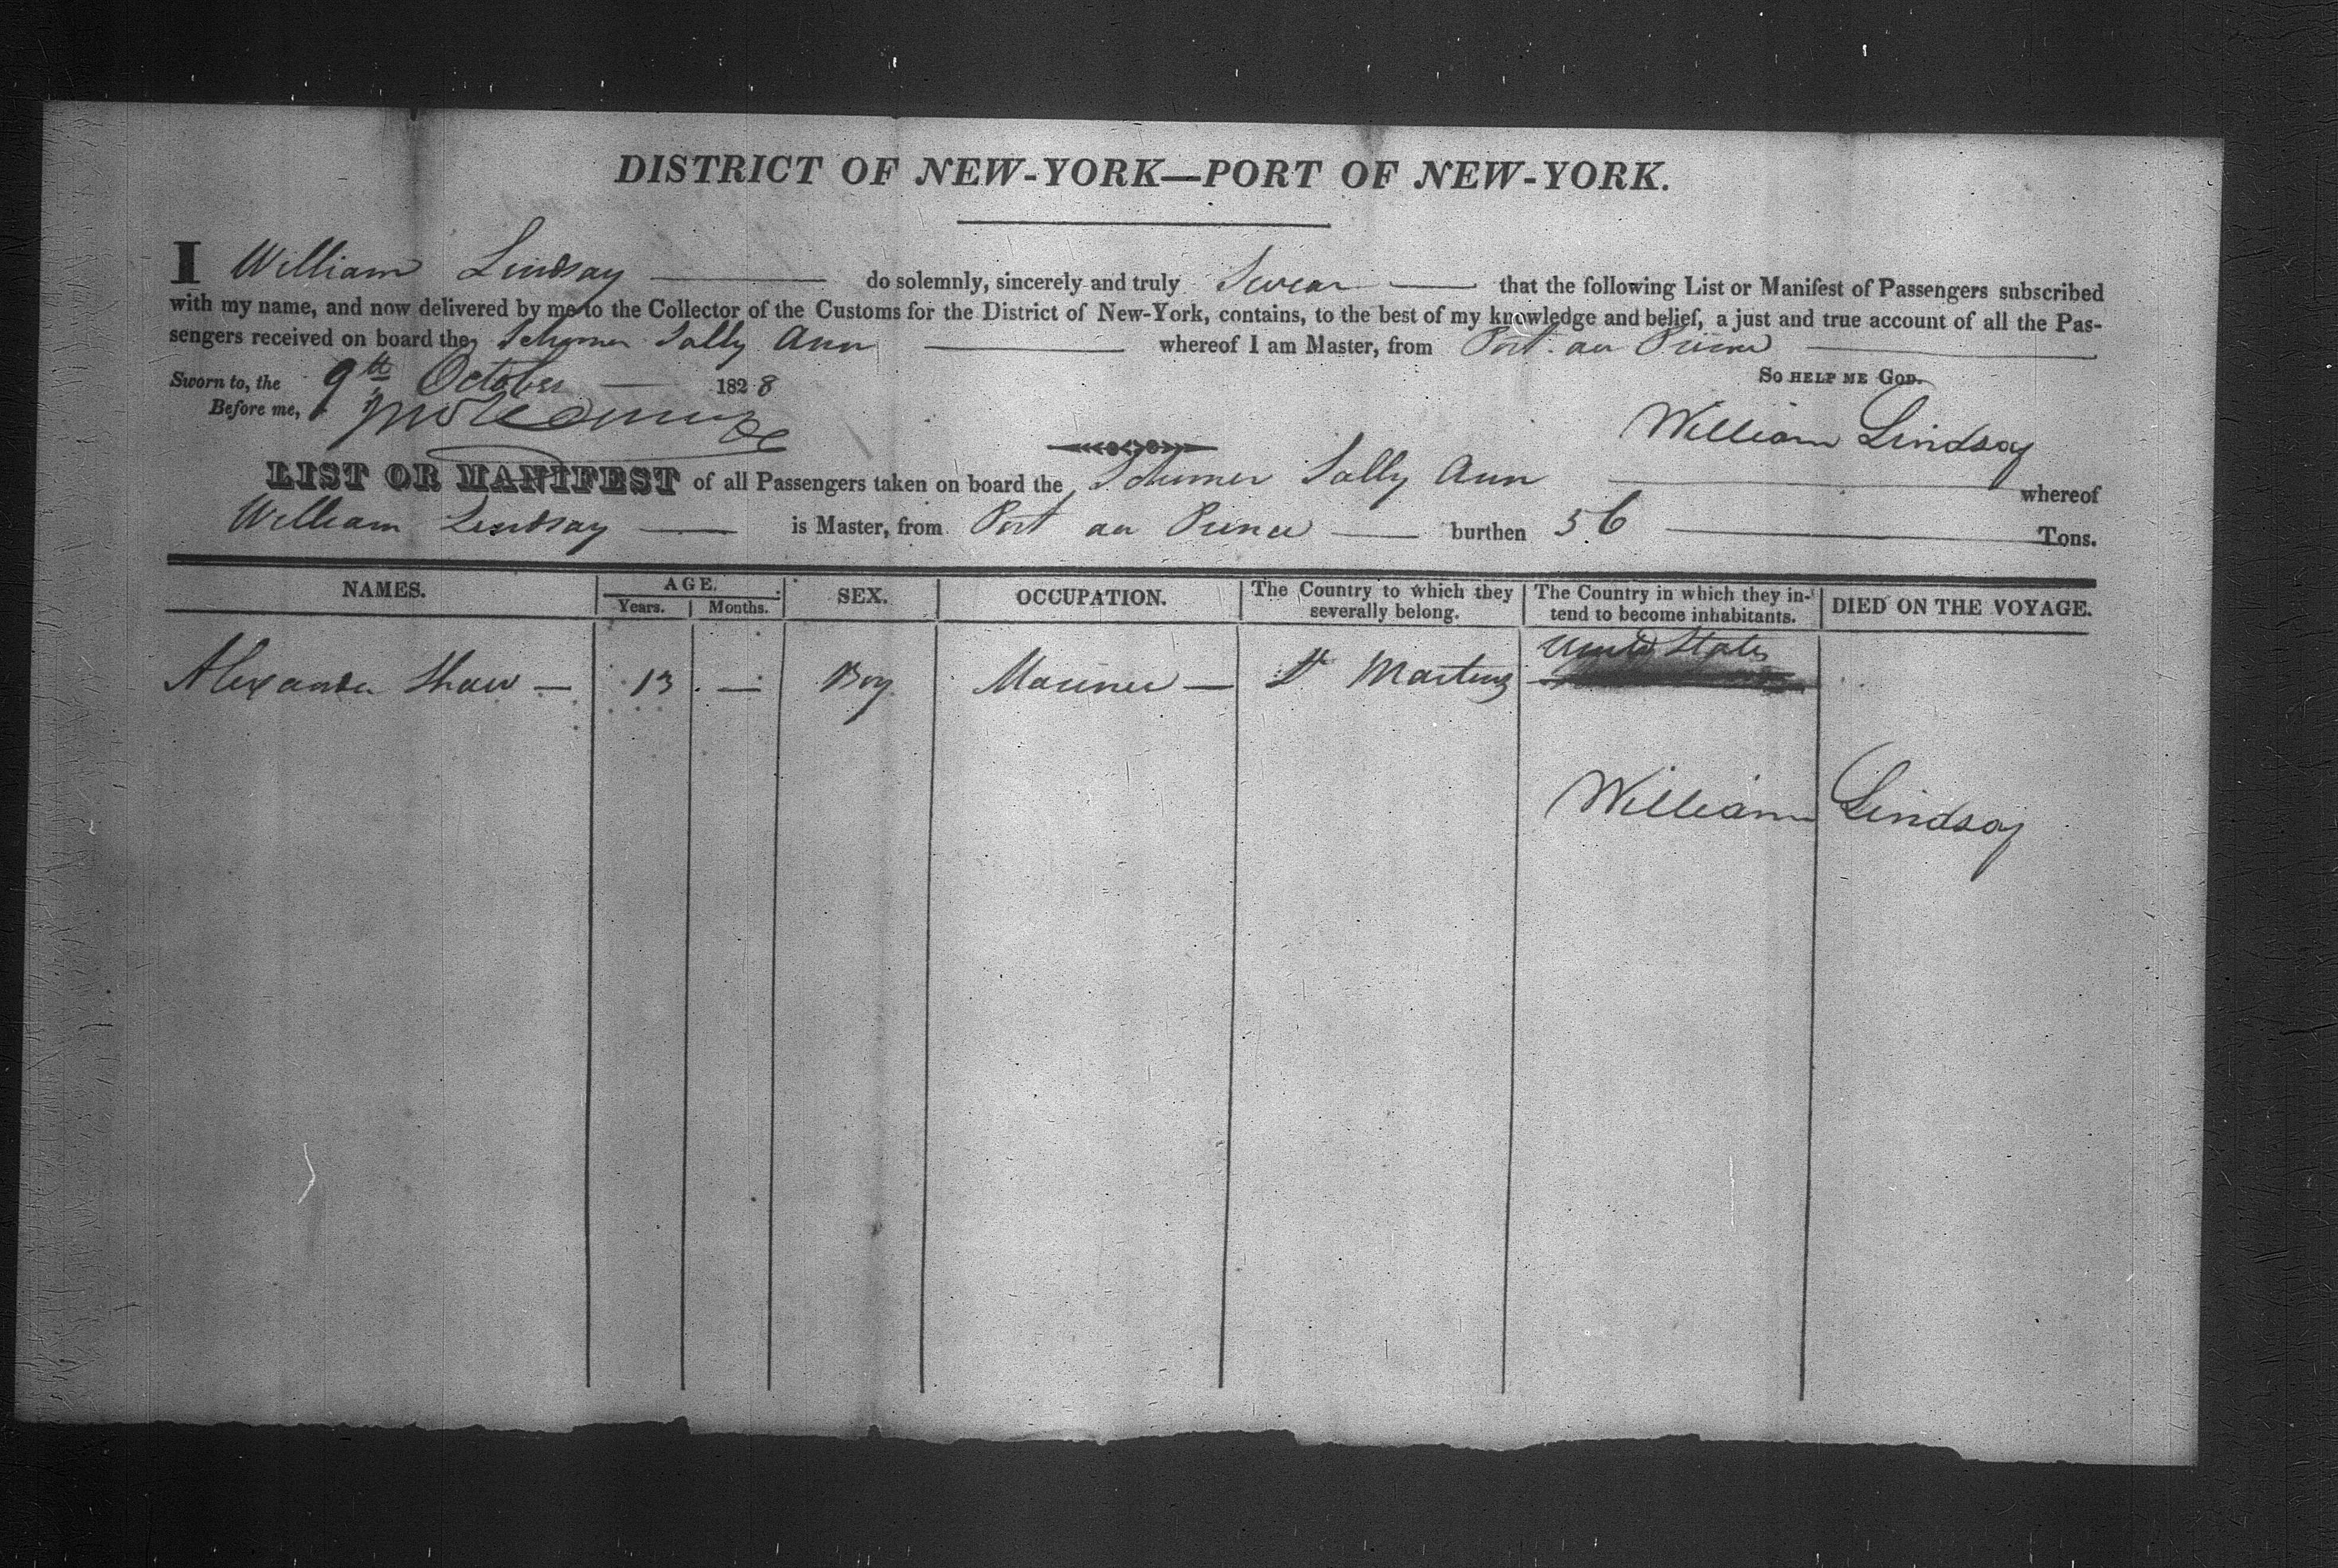 DISTRICT OF NEW-YORK—PORT OF NEW-YORK.
I William Lindsay do solemnly, sincerely and truly Swear that the following List or Manifest of Passengers subscribed
with my name, and now delivered by me to the Collector of the Customs for the District of New-York, contains, to the best of my knowledge and belief, a just and true account of all the Pas-
sengers received on board the Schooner Sally Ann whereof I am Master, from Port au Prince
Sworn to, the 9th October 1828 So HELP ME GOD.
Before me,
William Lindsay
LIST OR MANIFEST of all Passengers taken on board the Schooner Sally Ann whereof
William Lindsay is Master, from Port au Prince burthen 56 Tons.
NAMES. AGE. SEX. OCCUPATION. The Country to which they severally belong. The Country in which they in-tend to become inhabitants. DIED ON THE VOYAGE.
Years. Months.
Alexander Shaw — 13 — Boy Mariner — St Martins United States
William Lindsay